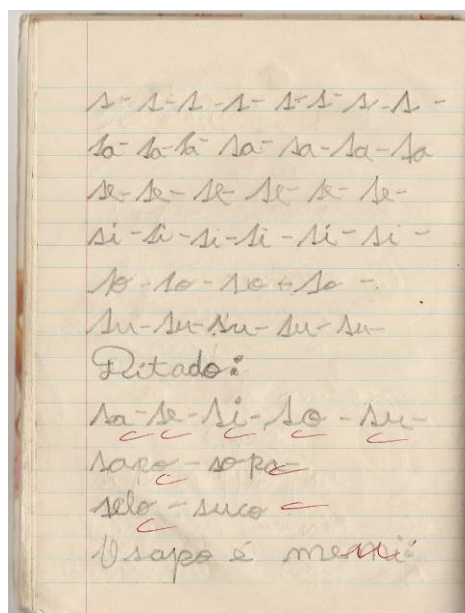 s - s - s - s - s - s - s - s -
sa - sa - sa - sa - sa - sa - sa
se - se - se - se - se - se -
si - si - si - si - si - si -
so - so - so + so -
su - su - su - su - su -
Ditado:
sa - se - si - so - su -
sapo - sopa
selo - suco
O sapo é